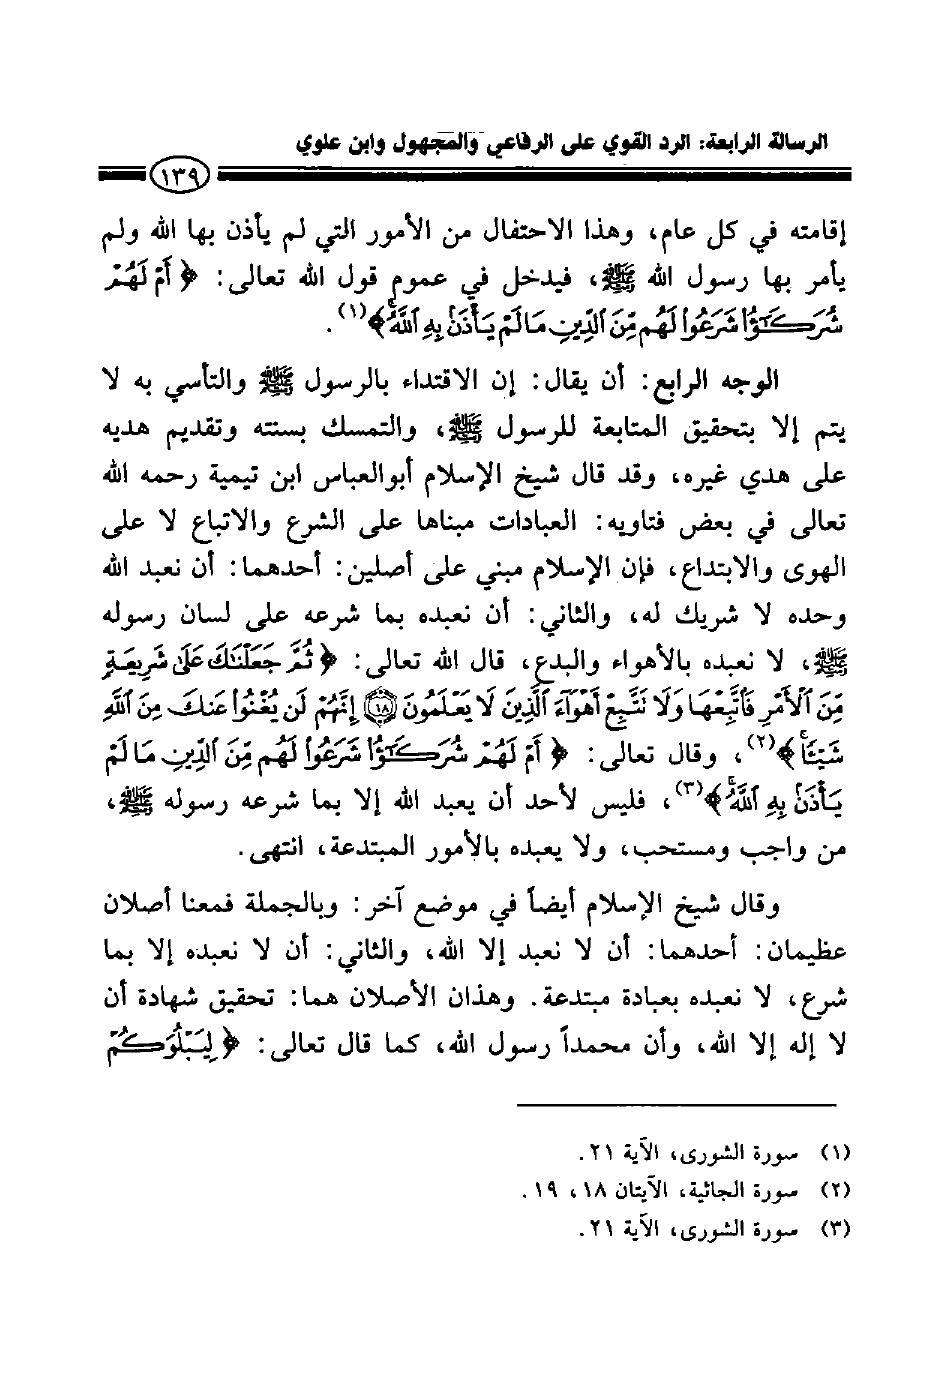 الرسالة الرابعة: الرد القوي على الرفاعي والمجهول وابن علوي
١٣٩
إقامته في كل عام، وهذا الاحتفال من الأمور التي لم يأذن بها الله ولم
يأمر بها رسول الله ﷺ، فيدخل في عموم قول الله تعالى: ﴿أَمْ لَهُمْ
شُرَكَٰٓؤُا۟ شَرَعُوا۟ لَهُم مِّنَ ٱلدِّينِ مَا لَمْ يَأْذَنۢ بِهِ ٱللَّهُ﴾(١).
الوجه الرابع: أن يقال: إن الاقتداء بالرسول ﷺ والتأسي به لا
يتم إلا بتحقيق المتابعة للرسول ﷺ، والتمسك بسنته وتقديم هديه
على هدي غيره، وقد قال شيخ الإسلام أبوالعباس ابن تيمية رحمه الله
تعالى في بعض فتاويه: العبادات مبناها على الشرع والاتباع لا على
الهوى والابتداع، فإن الإسلام مبني على أصلين: أحدهما: أن نعبد الله
وحده لا شريك له، والثاني: أن نعبده بما شرعه على لسان رسوله
ﷺ، لا نعبده بالأهواء والبدع، قال الله تعالى: ﴿ثُمَّ جَعَلْنَٰكَ عَلَىٰ شَرِيعَةٍ
مِّنَ ٱلْأَمْرِ فَٱتَّبِعْهَا وَلَا تَتَّبِعْ أَهْوَآءَ ٱلَّذِينَ لَا يَعْلَمُونَ ۝١٨ إِنَّهُمْ لَن يُغْنُوا۟ عَنكَ مِنَ ٱللَّهِ
شَيْـًٔا﴾(٢)، وقال تعالى: ﴿أَمْ لَهُمْ شُرَكَٰٓؤُا۟ شَرَعُوا۟ لَهُم مِّنَ ٱلدِّينِ مَا لَمْ
يَأْذَنۢ بِهِ ٱللَّهُ﴾(٣)، فليس لأحد أن يعبد الله إلا بما شرعه رسوله ﷺ،
من واجب ومستحب، ولا يعبده بالأمور المبتدعة، انتهى.
وقال شيخ الإسلام أيضاً في موضع آخر: وبالجملة فمعنا أصلان
عظيمان: أحدهما: أن لا نعبد إلا الله، والثاني: أن لا نعبده إلا بما
شرع، لا نعبده بعبادة مبتدعة. وهذان الأصلان هما: تحقيق شهادة أن
لا إله إلا الله، وأن محمداً رسول الله، كما قال تعالى: ﴿لِيَبْلُوَكُمْ
(١) سورة الشورى، الآية ٢١.
(٢) سورة الجاثية، الآيتان ١٨، ١٩.
(٣) سورة الشورى، الآية ٢١.